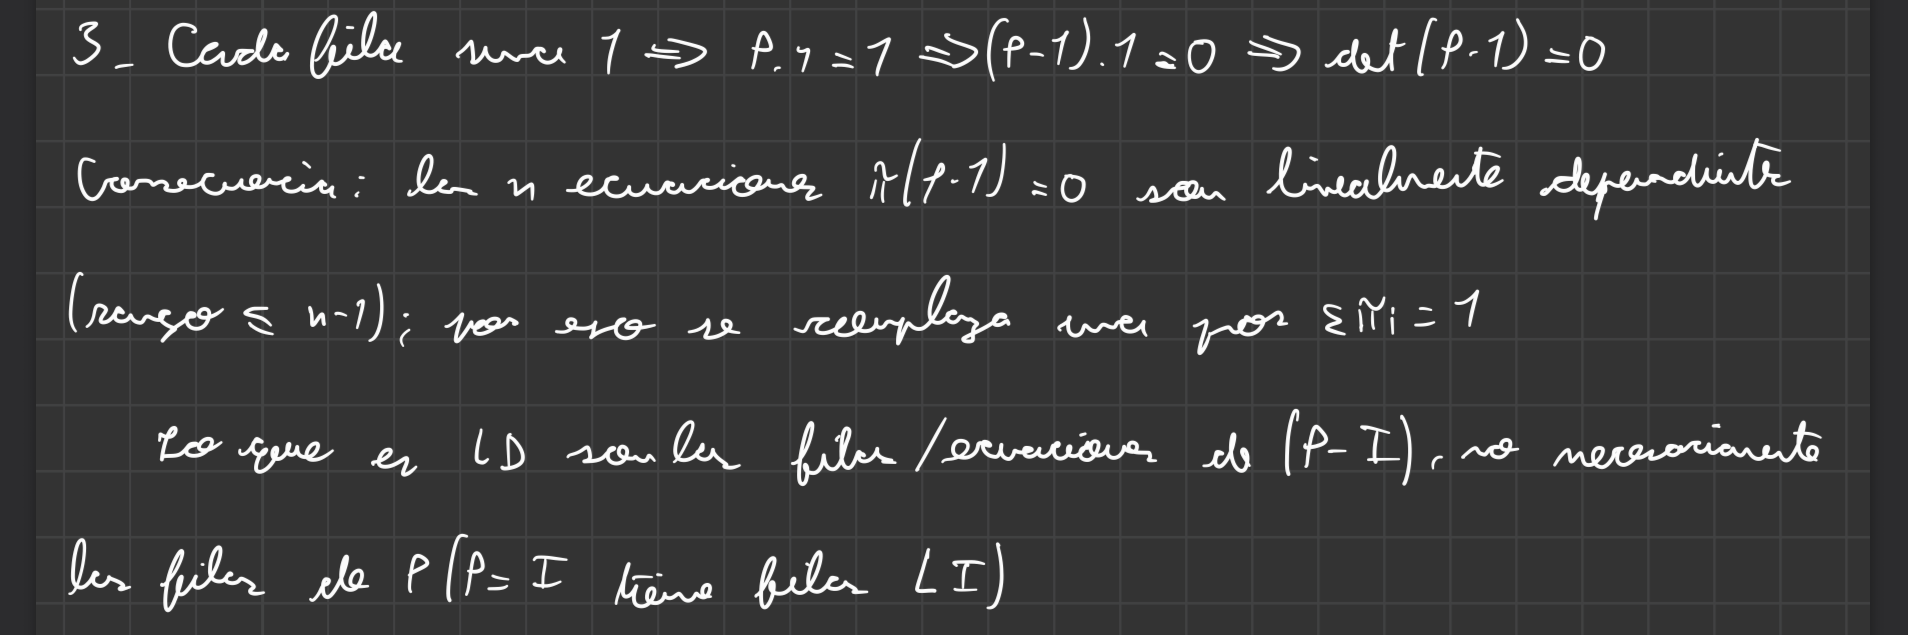 3_ Cada fila suma 1 ⇒ P.1 = 1 ⇒ (P-1).1 = 0 ⇒ det(P-1) = 0
Consecuencia: las n ecuaciones π(P-1) = 0 son linealmente dependiente
(rango ≤ n-1); por eso se reemplaza una por Σπi = 1
Lo que es LD son las filas/ecuaciones de (P-I), no necesariamente
las filas de P (P = I tiene filas LI)